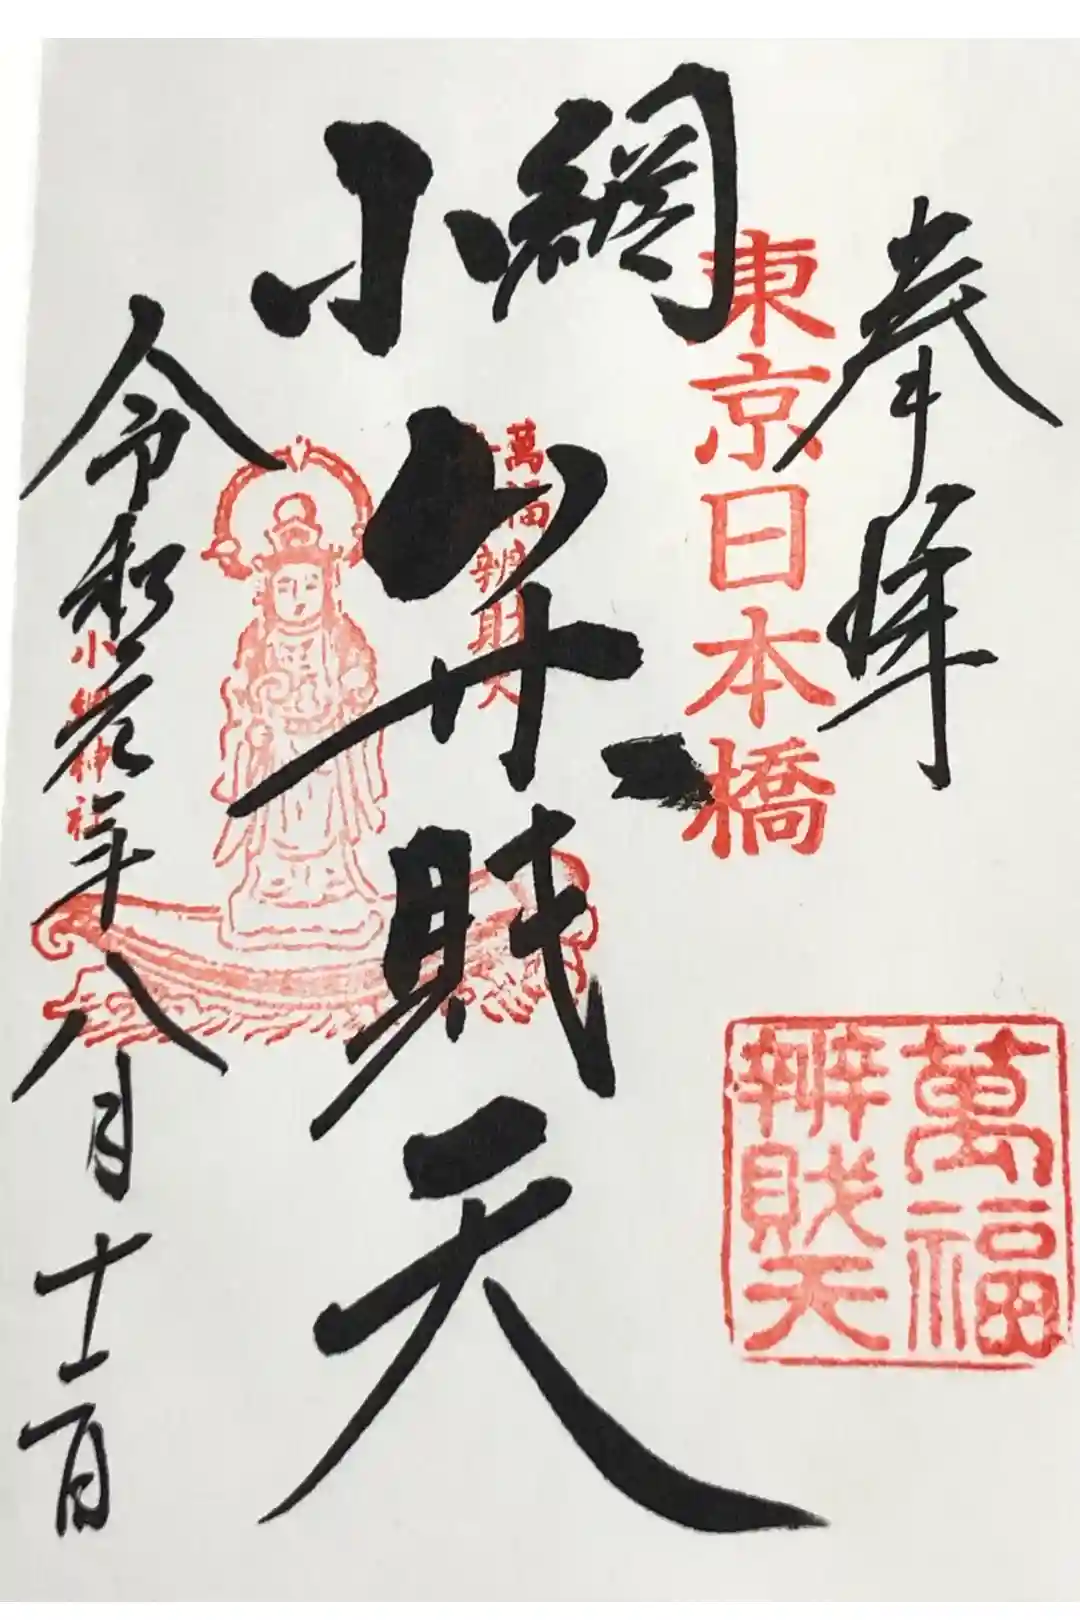 奉拝
東京日本橋
小網
弁財天
萬福辨財天
令和元年八月十二日
小網神社
萬福
辨財天